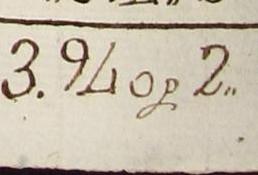 3. 94 og 2„